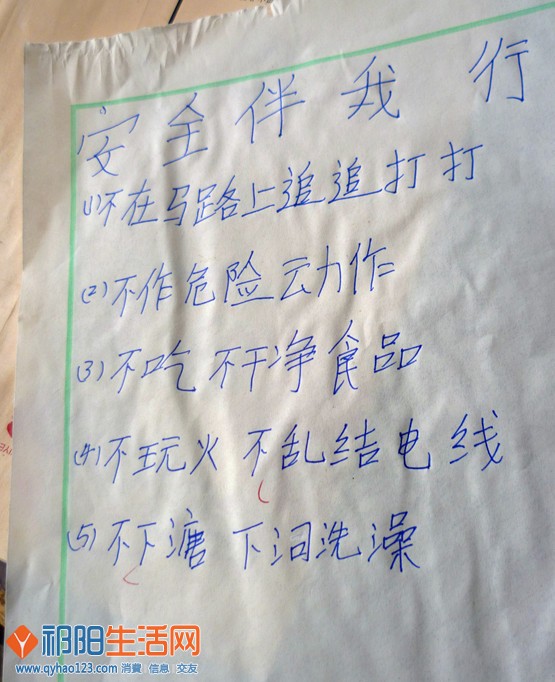 安全伴我行
(1)不在马路上追追打打
(2)不作危险动作
(3)不吃不干净食品
(4)不玩火 不乱结电线
(5)不下溏 下河洗澡
祁阳生活网
www.qyhao123.com 消費 信息 交友